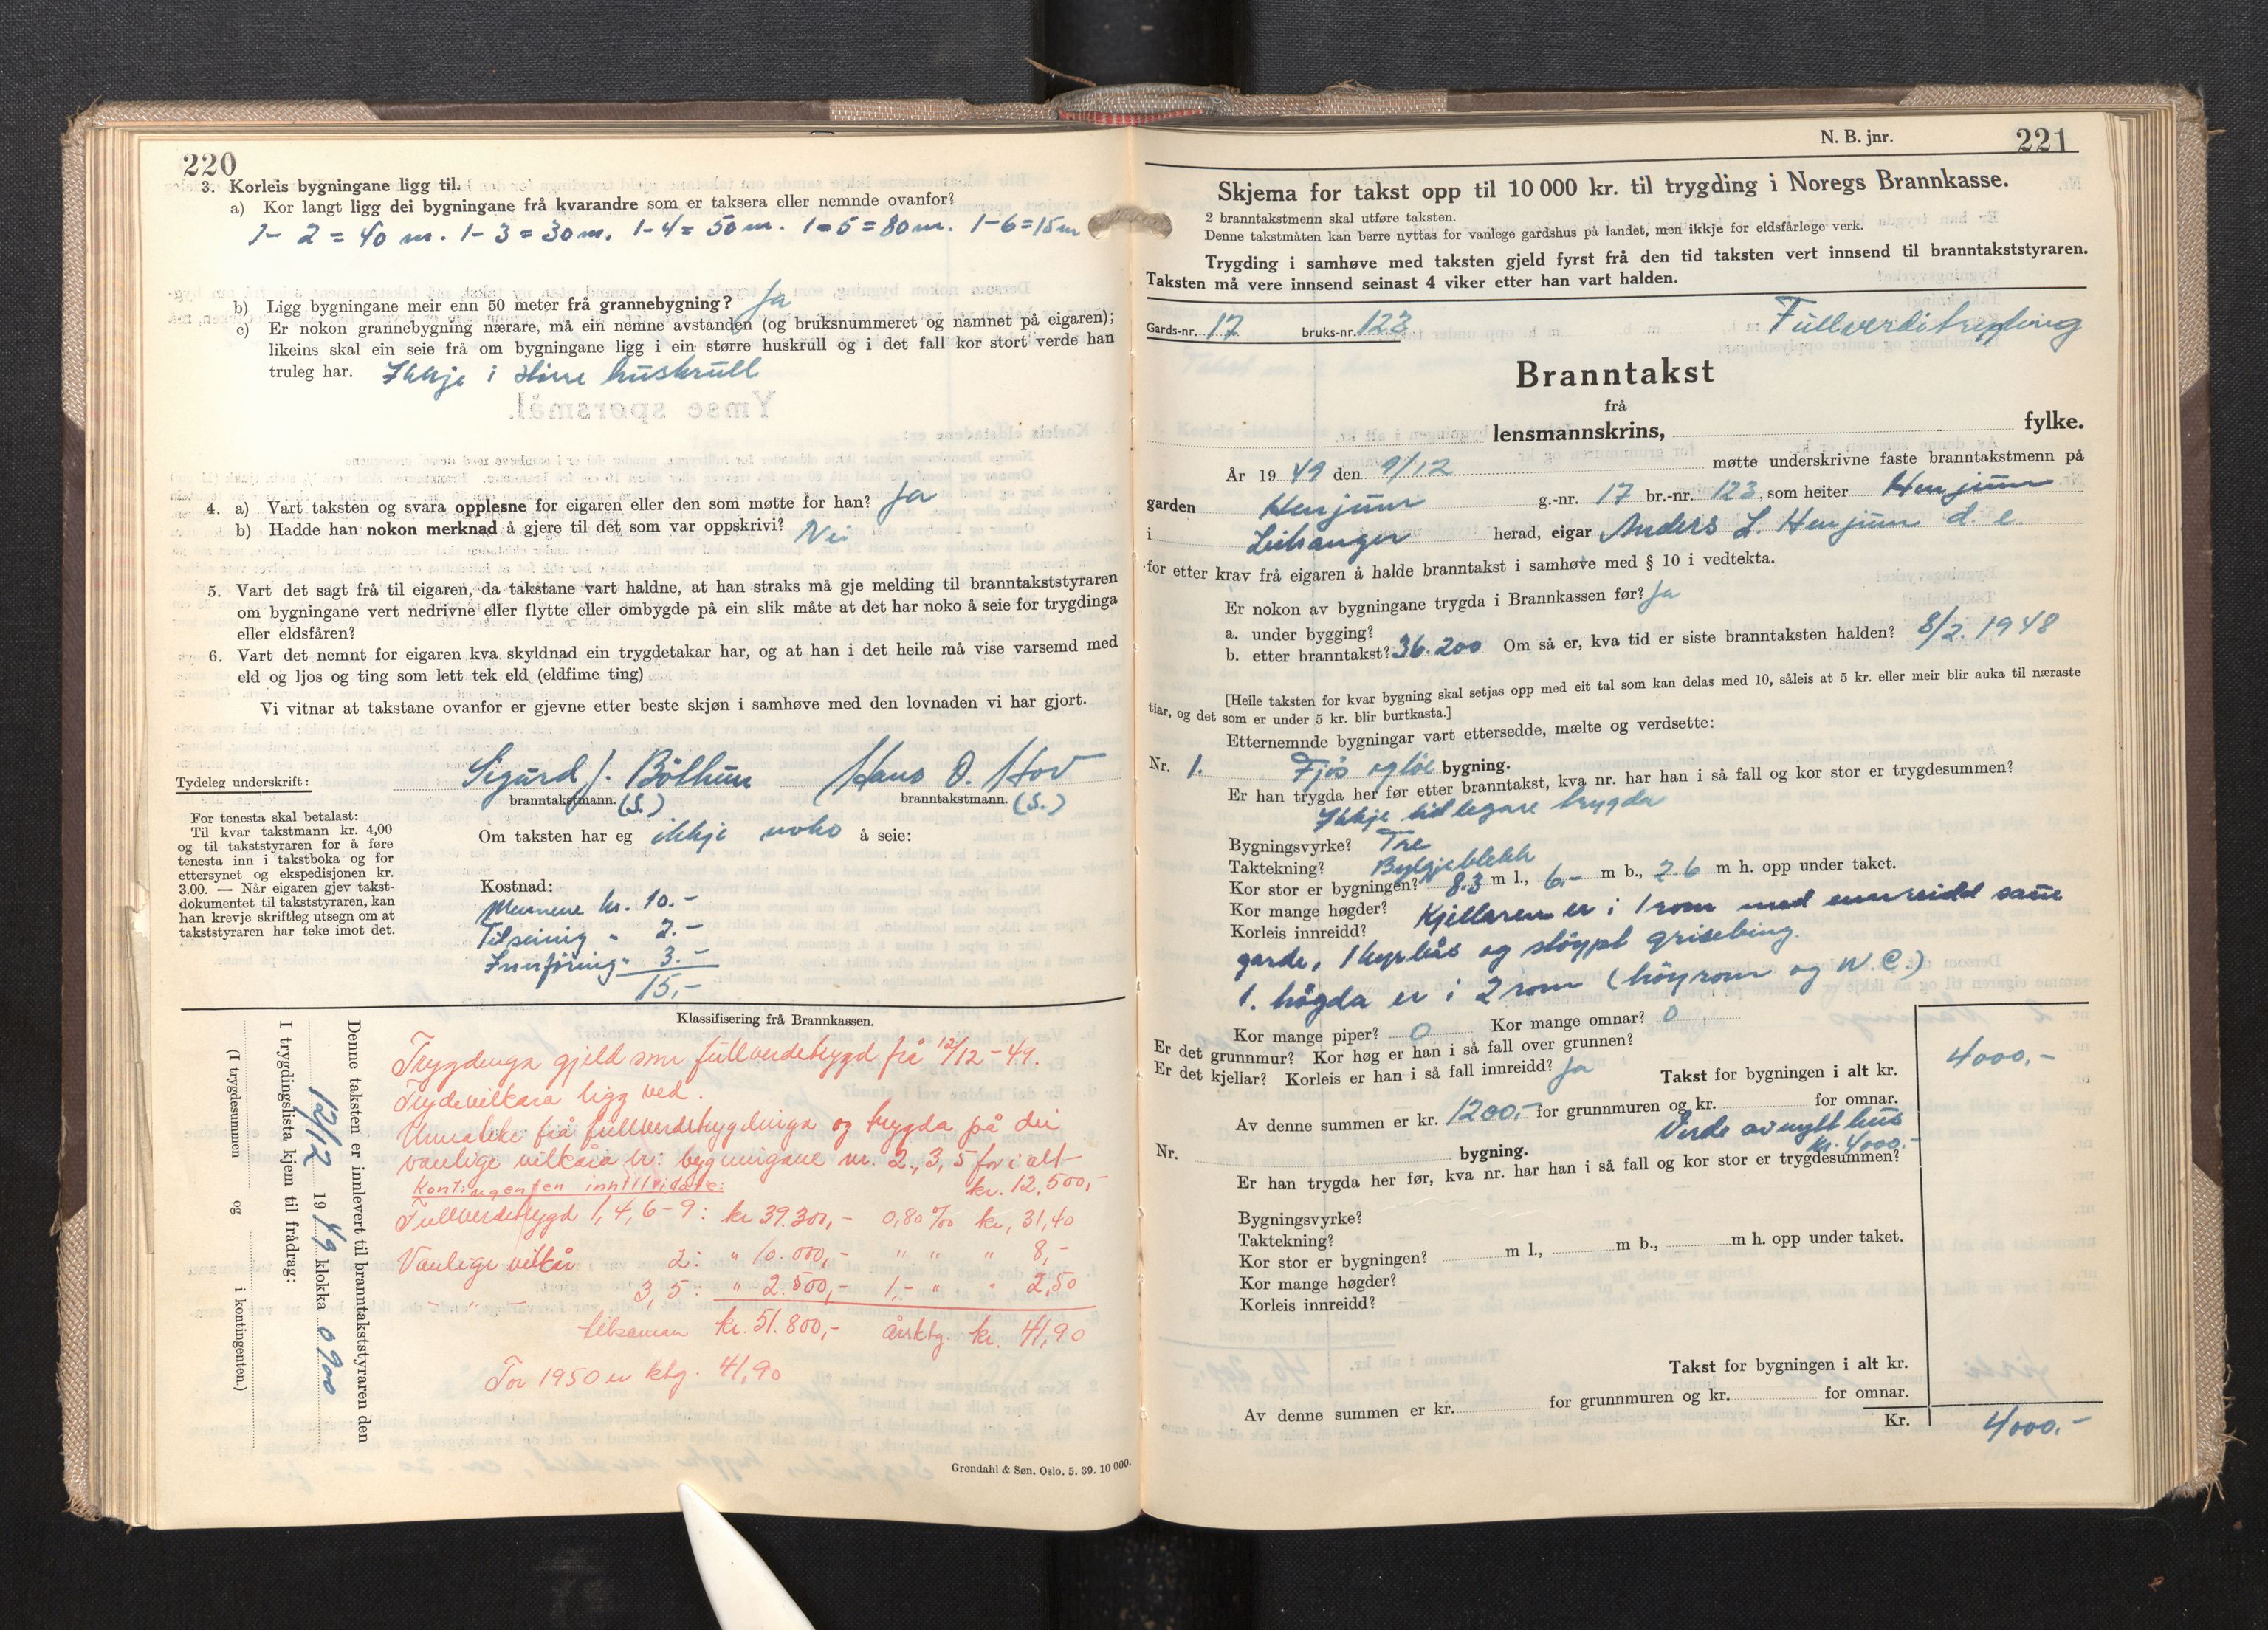 220
3. Korleis bygningane ligg til.
a) Kor langt ligg dei bygningane frå kvarandre som er taksera eller nemnde ovanfor?
1- 2 = 40 m. 1- 3 = 30 m. 1-4 = 50 m. 1-5 = 80 m. 1-6 = 15 m
b) Ligg bygningane meir enn 50 meter frå grannebygning? Ja
c) Er nokon grannebygning nærare, må ein nemne avstanden (og bruksnummeret og namnet på eigaren);
likeins skal ein seie frå om bygningane ligg i ein større huskrull og i det fall kor stort verde han
truleg har. Ikkje i större huskrull
4. a) Vart taksten og svara opplesne for eigaren eller den som møtte for han? Ja
b) Hadde han nokon merknad å gjere til det som var oppskrivi? Nei
5. Vart det sagt frå til eigaren, da takstane vart haldne, at han straks må gje melding til branntakststyraren
om bygningane vert nedrivne eller flytte eller ombygde på ein slik måte at det har noko å seie for trygdinga
eller eldsfåren?
6. Vart det nemnt for eigaren kva skyldnad ein trygdetakar har, og at han i det heile må vise varsemd med
eld og ljos og ting som lett tek eld (eldfime ting)
Vi vitnar at takstane ovanfor er gjevne etter beste skjøn i samhøve med den lovnaden vi har gjort.
Tydeleg underskrift: Sigurd J. Bölhun Hans O. Hov
branntakstmann. (S.) branntakstmann. (S.)
For tenesta skal betalast:
Til kvar takstmann kr. 4,00
og til takststyraren for å føre
tenesta inn i takstboka og for
ettersynet og ekspedisjonen kr.
3.00. — Når eigaren gjev takst-
dokumentet til takststyraren, kan
han krevje skriftleg utsegn om at
takststyraren har teke imot det.
Om taksten har eg ikkje noko å seie:
Kostnad:
Mennene kr. 10.-
Tilseinig " 2.-
Innföring " 3.-
15,-
Klassifisering frå Brannkassen.
Trygdinga gjeld som fullverdetrygd frå 12/12-49.
Trygdevilkåra ligg ved.
Unnateke frå fullverdetrygdinga og trygda på dei
vanlige vilkåra er: bygningane nr. 2, 3, 5 for i alt
kr. 12.500,-
Kontingenten inntilvidare:
Fullverdetrygd 1, 4, 6-9: kr 39.300,- 0,80 ‰ kr. 31,40
Vanlige vilkår 2: " 10.000,- " " " 8,-
-"- 3, 5: " 2.500,- 1,- " " 2,50
tilsaman kr. 51.800,- årsktg. kr. 41,90
For 1950 er ktg. 41,90
Denne taksten er innlevert til branntakststyraren den
12/12 1949 klokka 0900
I trygdingslista kjem til frådrag:
(I trygdesummen og i kontingenten.)
Grøndahl & Søn. Oslo. 5. 39. 10 000.
N. B. jnr. 221
Skjema for takst opp til 10 000 kr. til trygding i Noregs Brannkasse.
2 branntakstmenn skal utføre taksten.
Denne takstmåten kan berre nyttas for vanlege gardshus på landet, men ikkje for eldsfårlege verk.
Trygding i samhøve med taksten gjeld fyrst frå den tid taksten vert innsend til branntakststyraren.
Taksten må vere innsend seinast 4 viker etter han vart halden.
Gards-nr. 17 bruks-nr. 123 Fullverditrygding
Branntakst
frå
lensmannskrins, fylke.
År 1949 den 9/12 møtte underskrivne faste branntakstmenn på
garden Henjum g.-nr. 17 br.-nr. 123, som heiter Henjum
i Leikanger herad, eigar Anders L. Henjum d. e.
for etter krav frå eigaren å halde branntakst i samhøve med § 10 i vedtekta.
Er nokon av bygningane trygda i Brannkassen før? Ja
a. under bygging?
b. etter branntakst? 36.200 Om så er, kva tid er siste branntaksten halden? 8/2. 1948
[Heile taksten for kvar bygning skal setjas opp med eit tal som kan delas med 10, såleis at 5 kr. eller meir blir auka til næraste
tiar, og det som er under 5 kr. blir burtkasta.]
Etternemnde bygningar vart ettersedde, mælte og verdsette:
Nr. 1. Fjös og löe bygning.
Er han trygda her før etter branntakst, kva nr. har han i så fall og kor stor er trygdesummen?
Ikkje tidlegare trygda
Bygningsvyrke? Tre
Taktekning? Bylgjeblekk
Kor stor er bygningen? 8.3 m l., 6.- m b., 2.6 m h. opp under taket.
Kor mange høgder? Kjellaren er i 1 rom med innreidd saue
Korleis innreidd?
garde, 1 kyrbås og stöypt grisebing.
1. högda er i 2 rom (höyrom og W.C.)
Kor mange piper? 0 Kor mange omnar? 0
Er det grunnmur? Kor høg er han i så fall over grunnen?
Er det kjellar? Korleis er han i så fall innreidd? Ja
Takst for bygningen i alt kr. 4000,-
Av denne summen er kr. 1200,- for grunnmuren og kr. for omnar.
Verde av nytt hus
kr. 4000.-
Nr. bygning.
Er han trygda her før, kva nr. har han i så fall og kor stor er trygdesummen?
Bygningsvyrke?
Taktekning?
Kor stor er bygningen? m l., m b., m h. opp under taket.
Kor mange høgder?
Korleis innreidd?
Takst for bygningen i alt kr.
Av denne summen er kr. for grunnmuren og kr. for omnar.
Kr. 4000.-